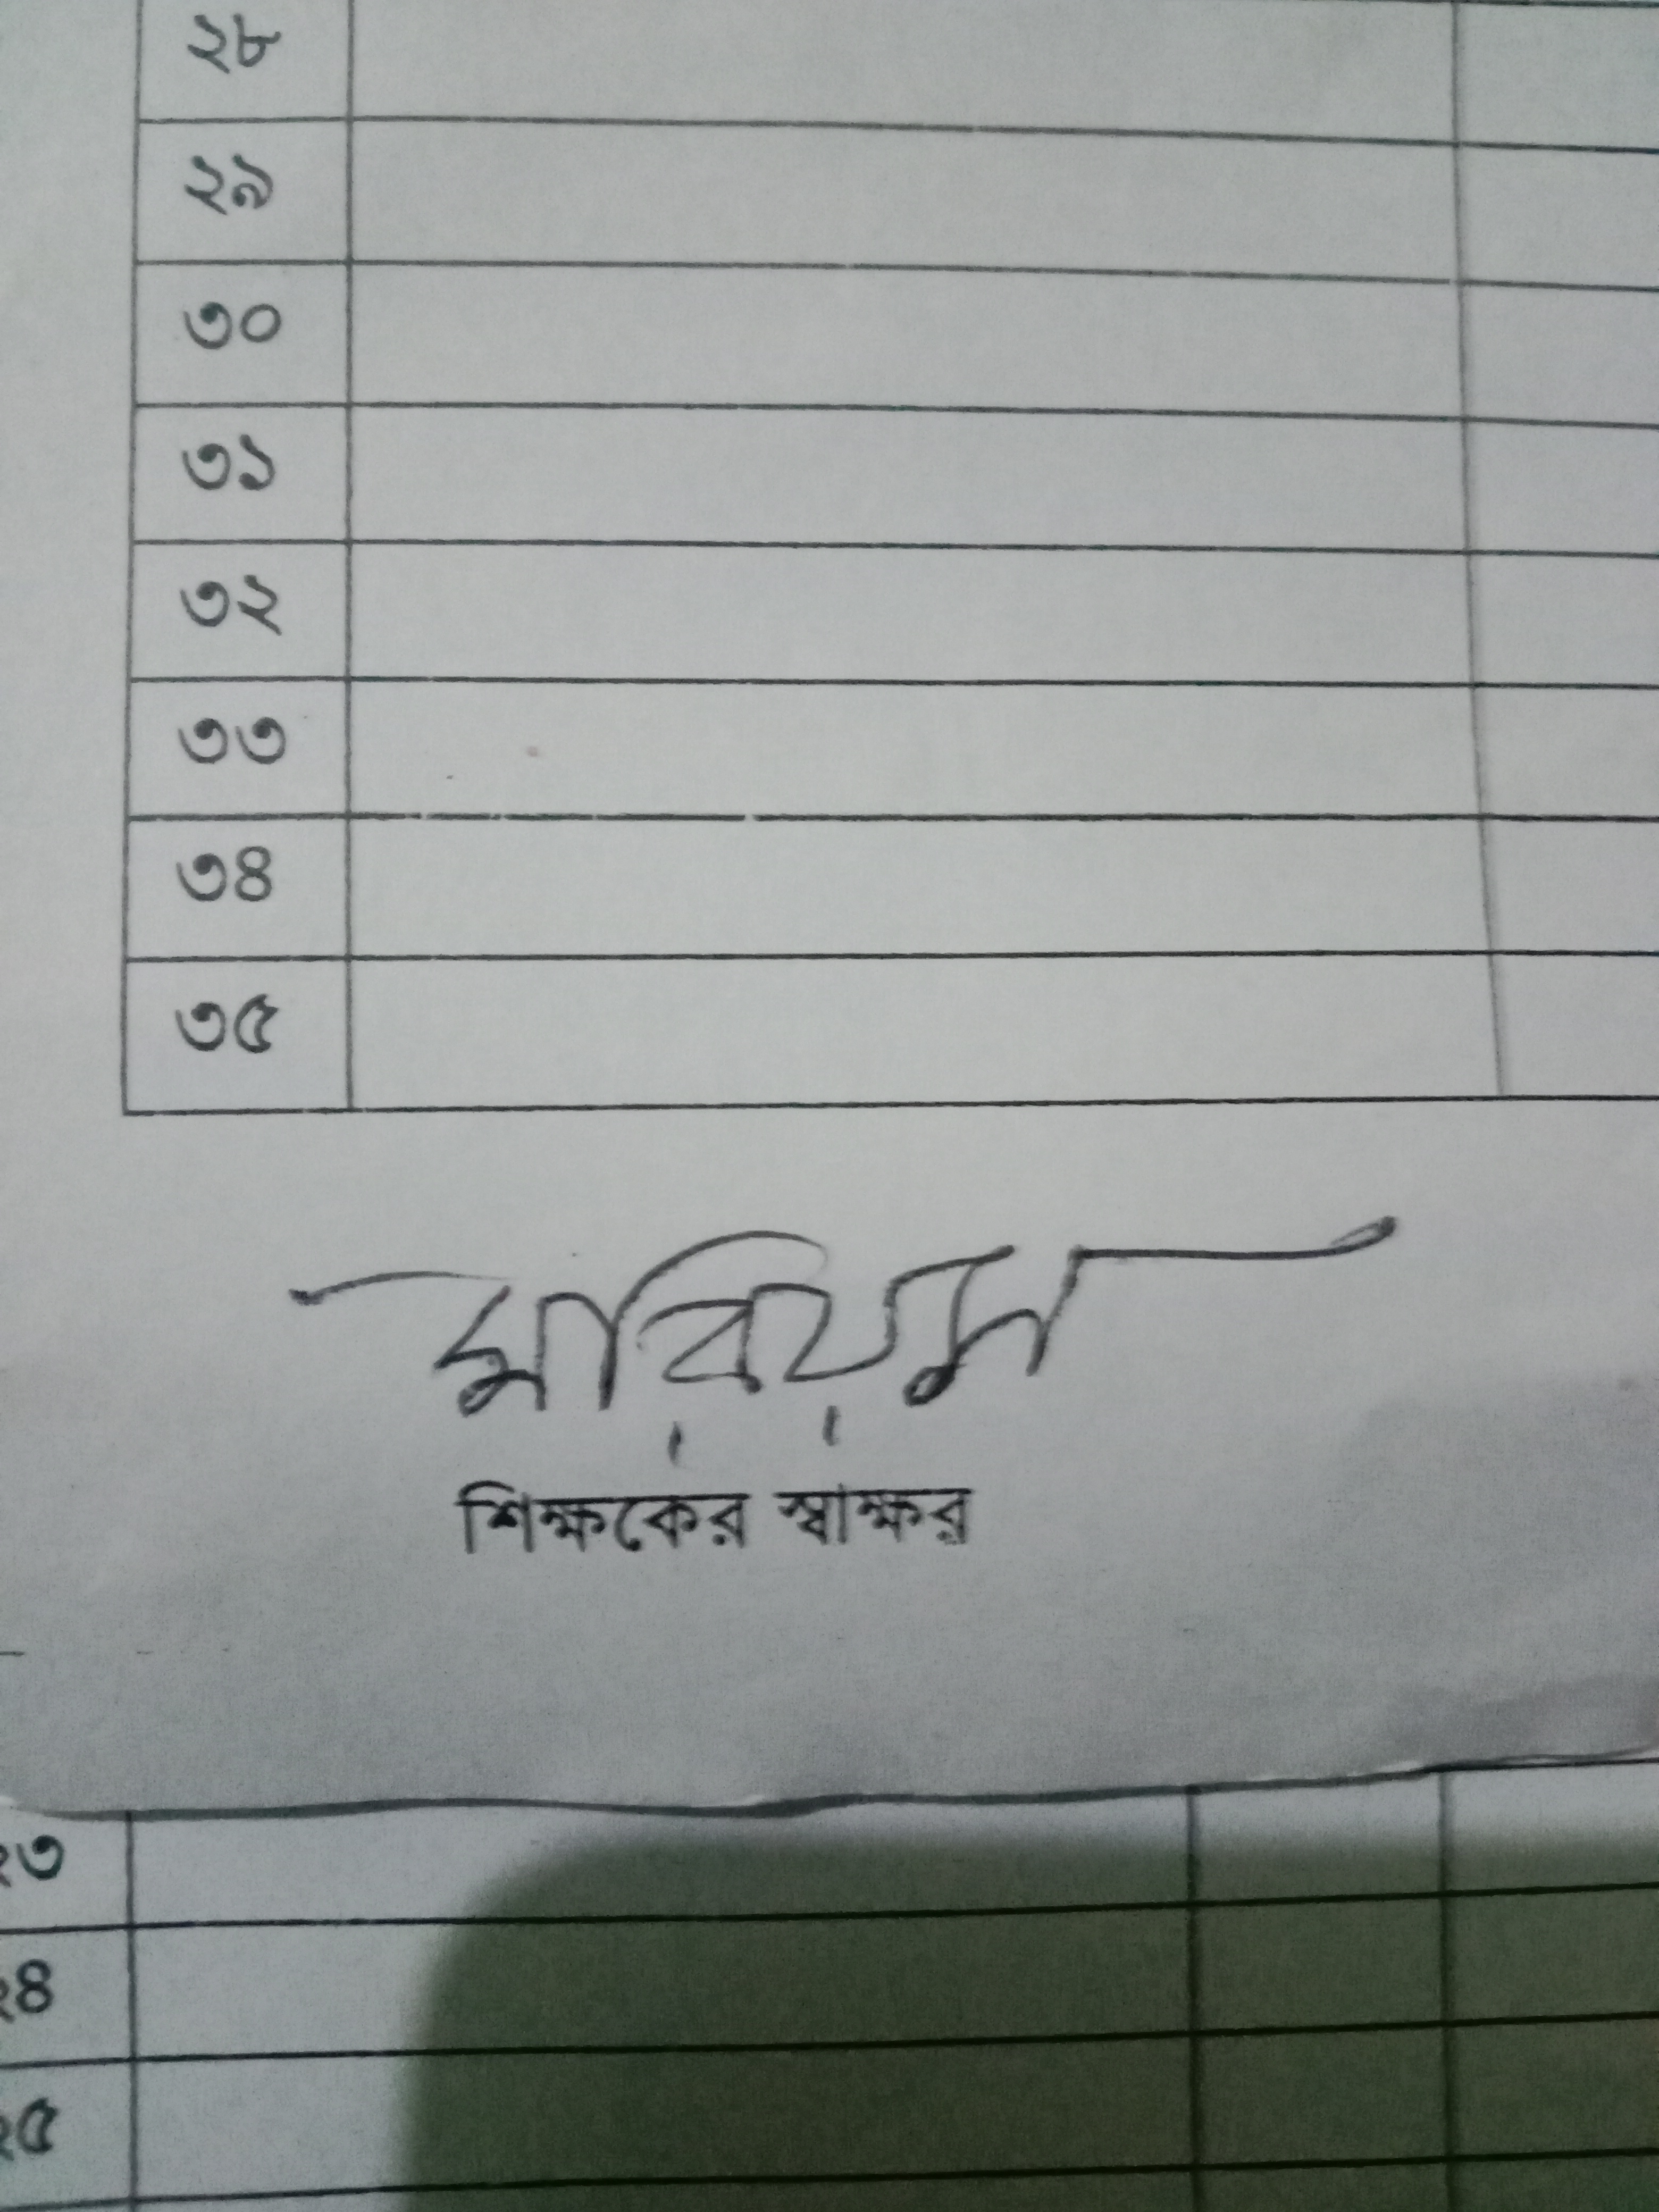 ২৮
২৯
৩০
৩১
৩২
৩৩
৩৪
৩৫
মারিয়াম
শিক্ষকের স্বাক্ষর
২৩
২৪
২৫